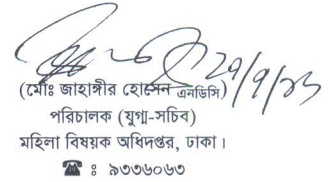 (মোঃ জাহাঙ্গীর হোসেন এনডিসি)
পরিচালক (যুগ্ম-সচিব)
মহিলা বিষয়ক অধিদপ্তর, ঢাকা।
☎ ঃ ৯৩৩৬০৬৩